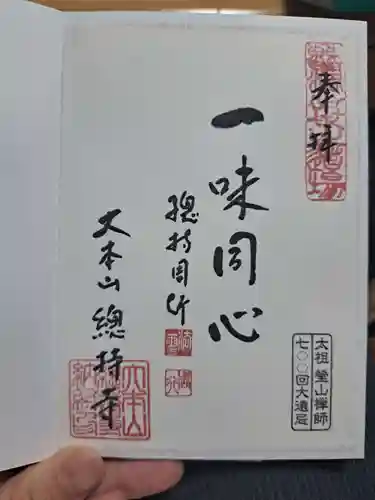 奉拝
一味同心
總持周行
大本山總持寺
太祖瑩山禅師
七〇〇回大遠忌